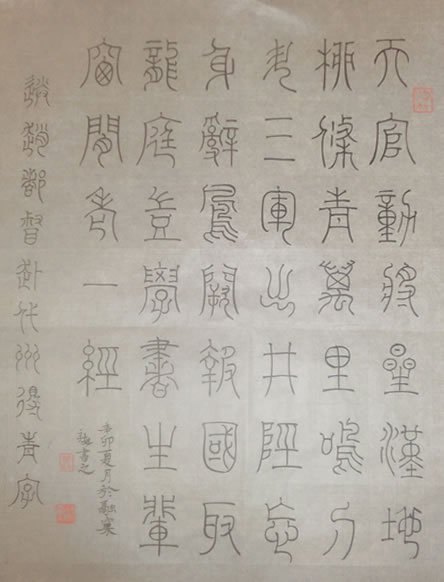 天官動將星漢地
柳條青萬里鳴刁
斗三軍出井陘忘
身辭鳳闕報國取
龍庭豈學書生輩
窗間老一經
送趙都督赴代州得青字
辛卯夏月於融
書之